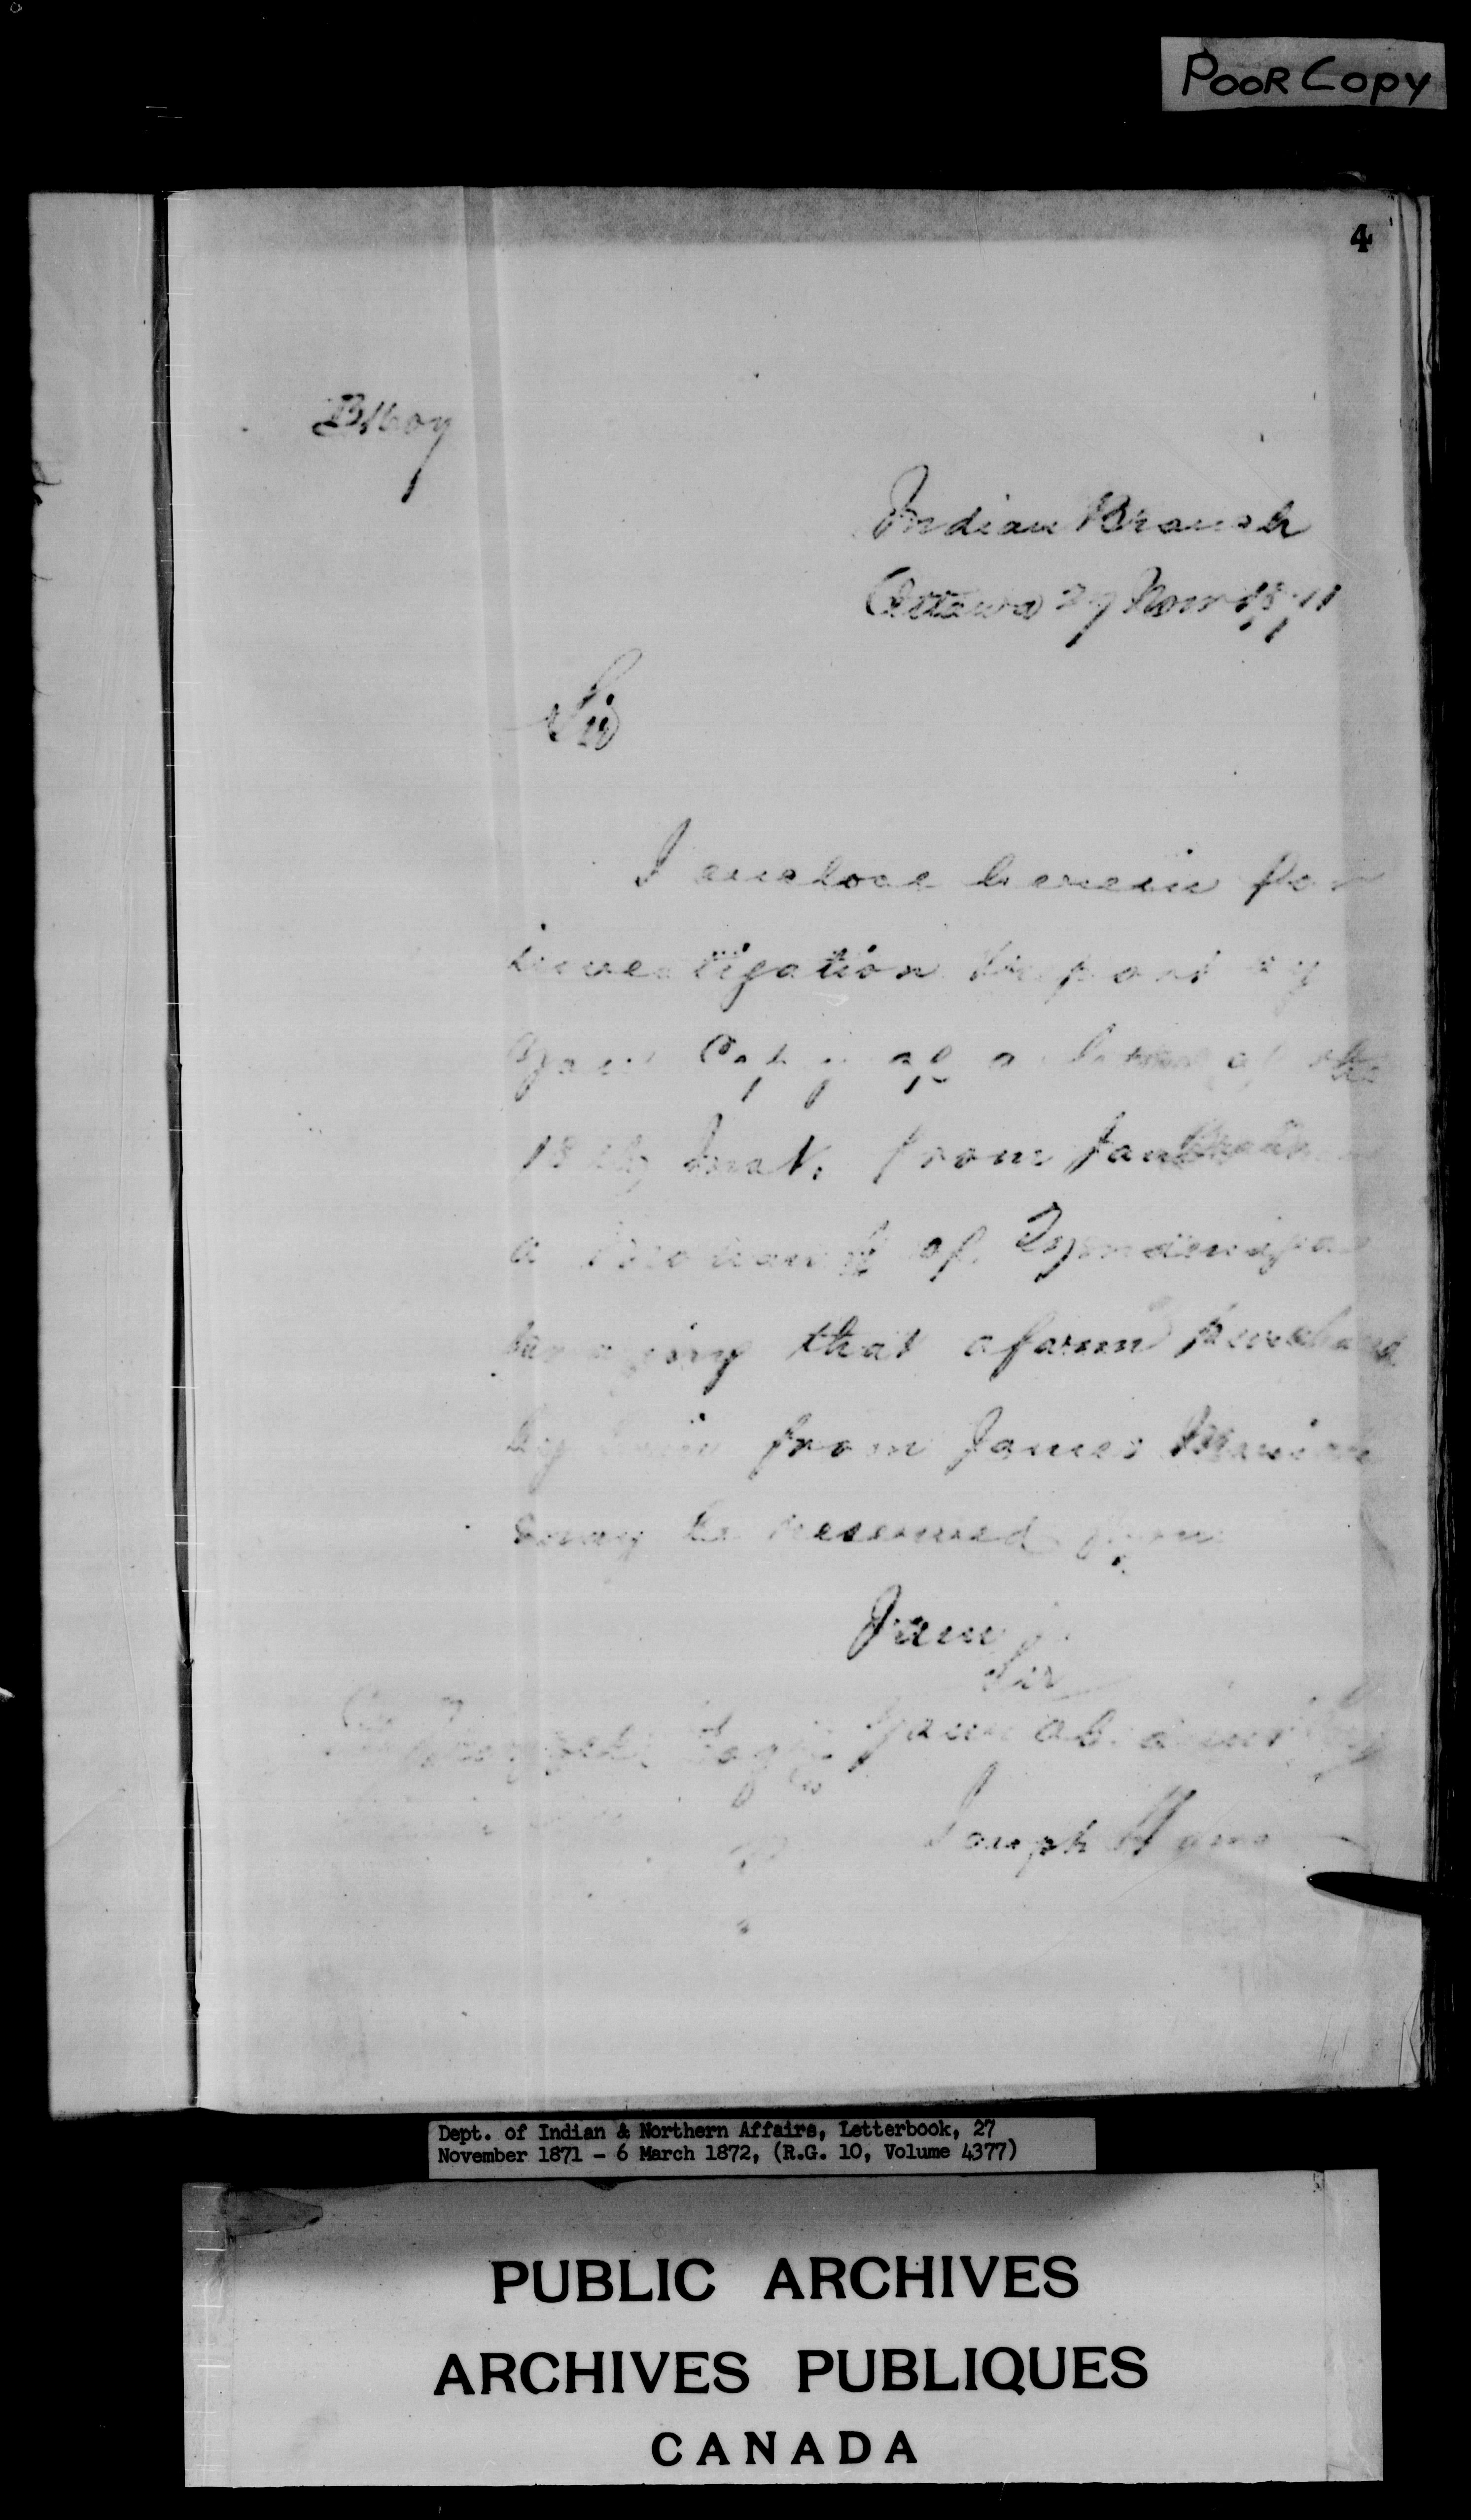 POOR COPY
4
Indian Branch
Ottawa 27 Novr 1871
Sir
I enclose herein for
investigation & report by
you Copy of a letter of the
18th Inst. from
a Mohawk of Tyendinaga
praying that a farm purchased
by him from James
may be reserved for him
I am
Sir
Your obedient
Joseph Howe
Dept. of Indian & Northern Affairs, Letterbook, 27
November 1871 - 6 March 1872, (R.G. 10, Volume 4377)
PUBLIC ARCHIVES
ARCHIVES PUBLIQUES
CANADA